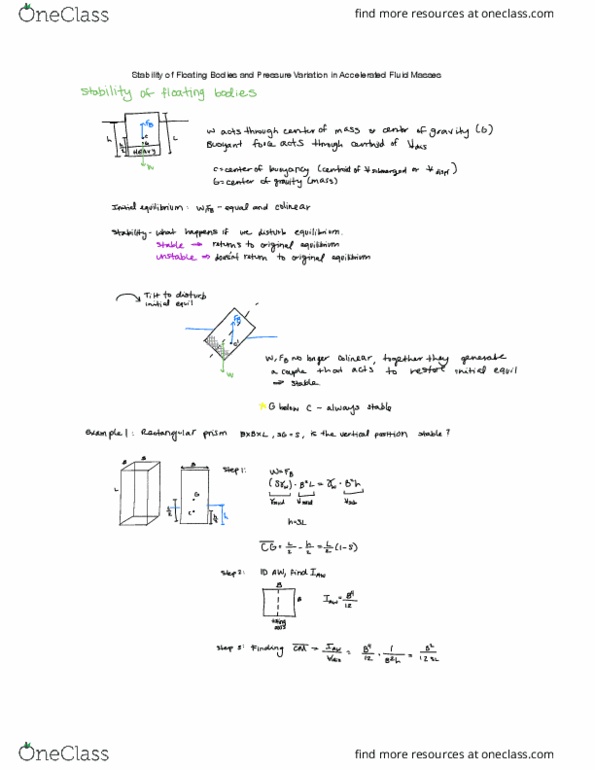 OneClass
find more resources at oneclass.com
Stability of Floating Bodies and Pressure Variation in Accelerated Fluid Masses
Stability of floating bodies
FB
h
L
C
G
HEAVY
W
W acts through center of mass or center of gravity (G)
Buoyant force acts through centroid of V dis
C = center of buoyancy (centroid of V submerged or V displ)
G = center of gravity (mass)
Initial equilibrium: W, FB - equal and colinear
Stability - what happens if we disturb equilibrium.
stable → returns to original equilibrium
unstable → doesn't return to original equilibrium
Tilt to disturb
initial equil
FB
W
W, FB no longer colinear, together they generate
a couple that acts to restore initial equil
→ stable
G below C - always stable
Example 1: Rectangular prism B×B×L, SG = S, is the vertical position stable?
B B
L
G
C
L/2
h/2
h
Step 1: W = FB
(Sγw) · B²L = γw · B²h
h = SL
CG = L/2 - h/2 = L/2 (1-S)
Step 2: ID AW, find I AW
B
B
tilting
axis
I AW = B⁴/12
Step 3: Finding CM → I AW / V dis = B⁴/12 · 1/B²h = B²/12SL
OneClass
find more resources at oneclass.com